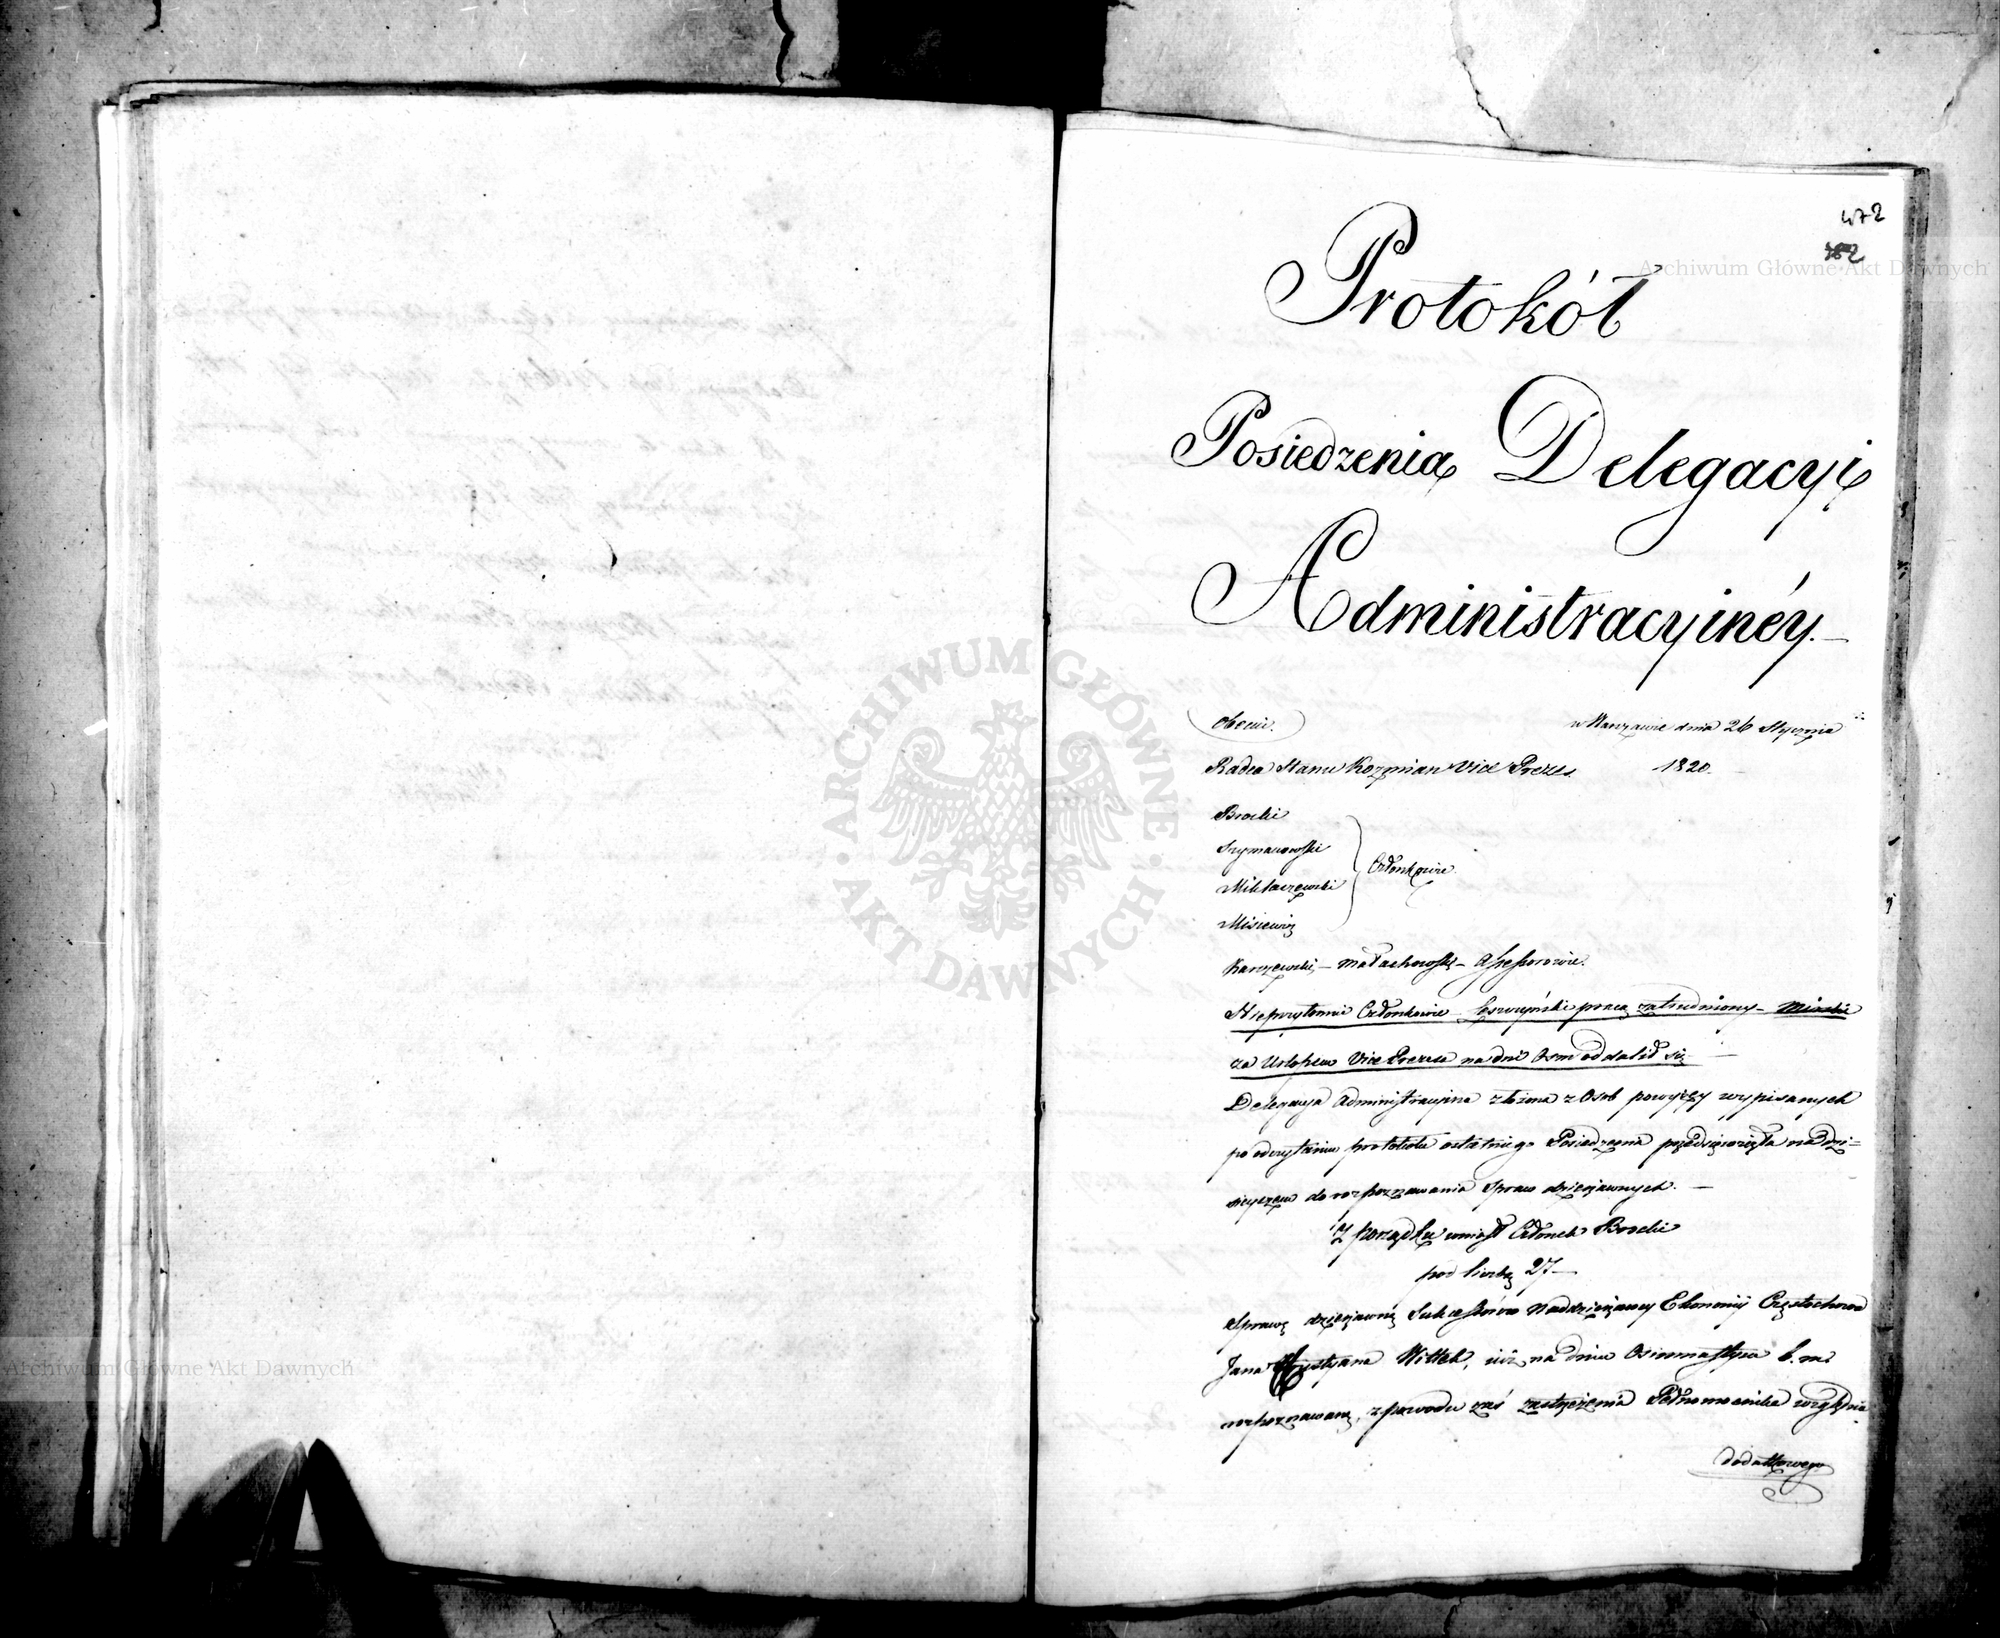 472
Archiwum Główne Akt Dawnych
Protokół
Posiedzenia Delegacyi
Administracyinéy.
obecni.
w Warszawie dnia 26 Stycznia
Radca Stanu Kozmian Vice Prezes
1820.
Brocki
Szymanowski
Mikłaszewski
Członkowie.
Misiewicz
Karszewski, — Małachowski — Assessorowie.
Nieprzytomni Członkowie — Leszczyński pracą zatrudniony —
za Urlopem Vice Prezesa na dni Osm oddalił się —
Delegacya Administracyina złożona z Osob powyżey wypisanych
po odczytaniu protokułu ostatniego Posiedzenia przedsięwzięła na dzi=
sieyszem do rozpoznawania Spraw dzierżawnych. —
Z porządku wniosł Członek Brocki
pod liczbą 27 —
Sprawę dzierżawną Sukcessorów Naddzierżawcy Ekonomij Częstochowa
Jana Krystyana Wittek, iuż na dniu Osiemnastym b. m.
rozpoznawaną, z powodu zaś zastrzeżenia Pełnomocnika względnie
dodatkowego
ARCHIWUM GŁÓWNE · AKT DAWNYCH ·
Archiwum Główne Akt Dawnych